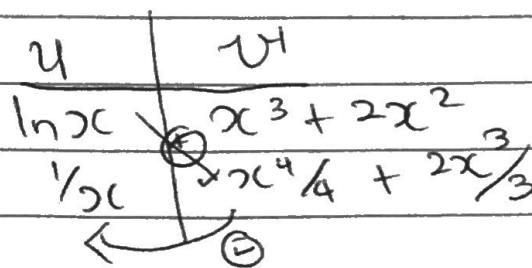 u v'
ln x + x³ + 2x²
1/x x⁴/4 + 2x³/3
−